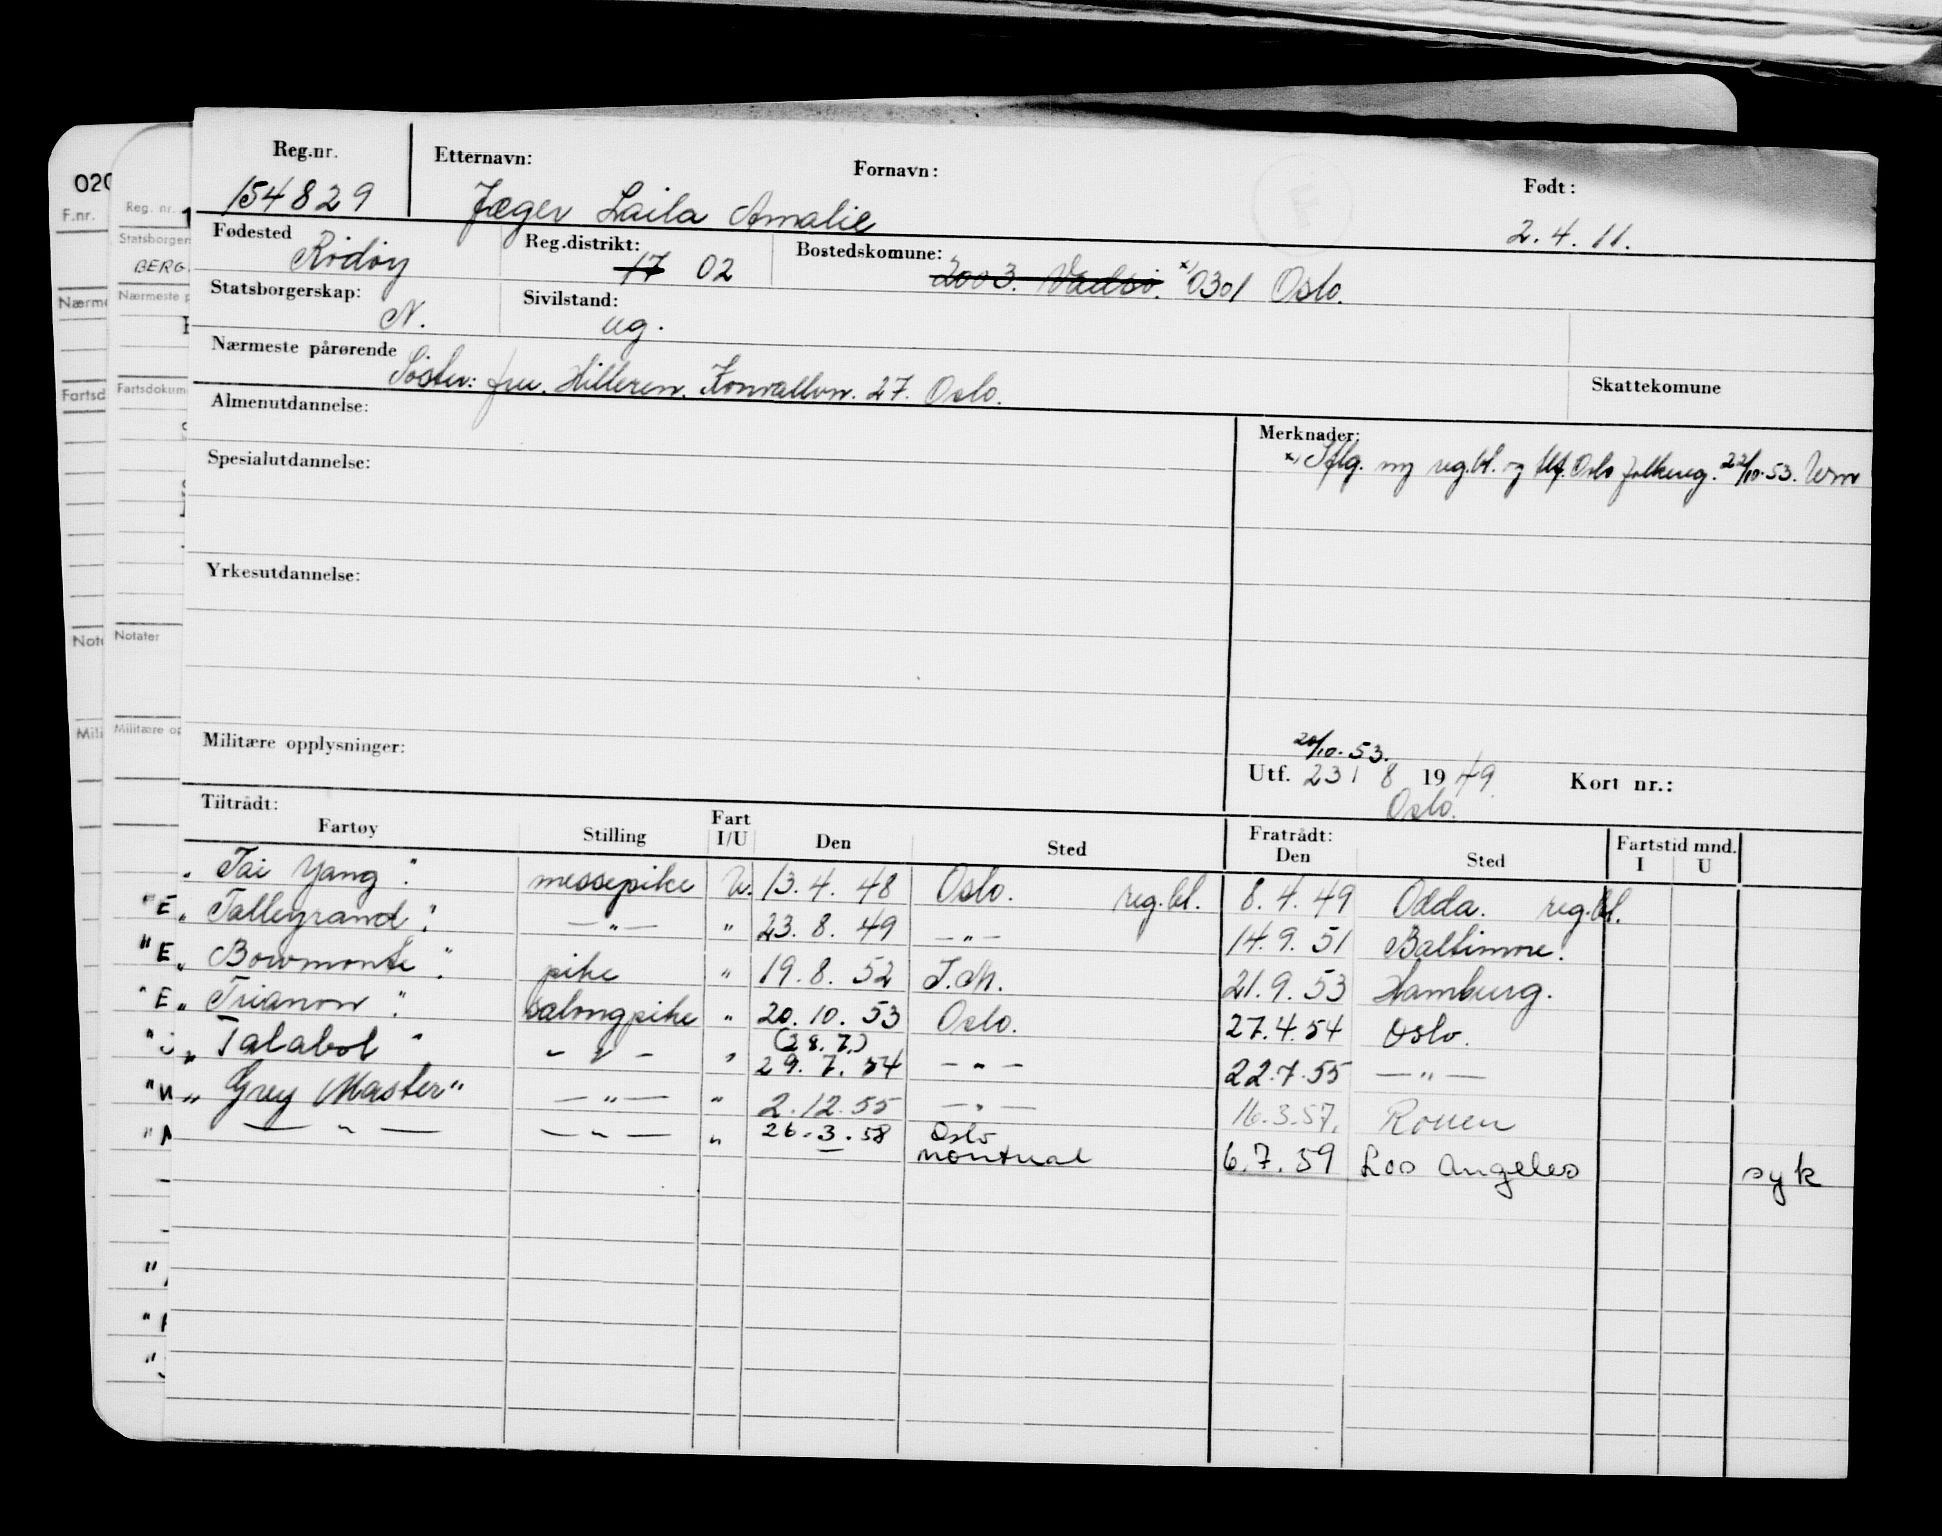 Reg.nr. Etternavn: Fornavn: Født:
154829 Jæger Laila Amalie 2.4.11.
F
Fødested Rödöy Reg.distrikt: 17 02 Bostedskomune: 2003. Vadsö. x) 0301 Oslo.
Statsborgerskap: N. Sivilstand: ug.
Nærmeste pårørende Söster: fru. Hilleren. Konvallvn. 27. Oslo. Skattekomune
Almenutdannelse: Merknader:
x) Iflg. ny reg.bl. og Oslo folkereg. 22/10.53.
Spesialutdannelse:
Yrkesutdannelse:
Militære opplysninger: 20/10.53.
Utf. 23 / 8 1949 Kort nr.:
Oslo.
Tiltrådt: Fratrådt: Fartstid mnd.
Fartøy Stilling Fart I/U Den Sted Den Sted I U
" Tai Yang " messepike U. 13.4.48 Oslo. reg.bl. 8.4.49 Odda. reg.bl.
" Talleyrand " — " — " 23.8.49 — " — 14.9.51 Baltimore.
" Bowmonte " pike " 19.8.52 21.9.53 Hamburg.
" Trianon " salongpike " 20.10.53 Oslo. 27.4.54 Oslo.
" Talabot " — " — " (28.7.) 29.7.54 — " — 22.7.55 — " —
" Grey Master " — " — " 2.12.55 — " — 16.3.57. Rouen
— " — — " — " 26.3.58 Oslo
Montreal 6.7.59 Los Angeles syk
020
F.nr.
Reg. nr. 1
Statsborgers
BERG
Nærme
Nærmeste p
Fartsd
Fartsdokum
Note
Notater
Mili
Militære op
"E
"E
"E